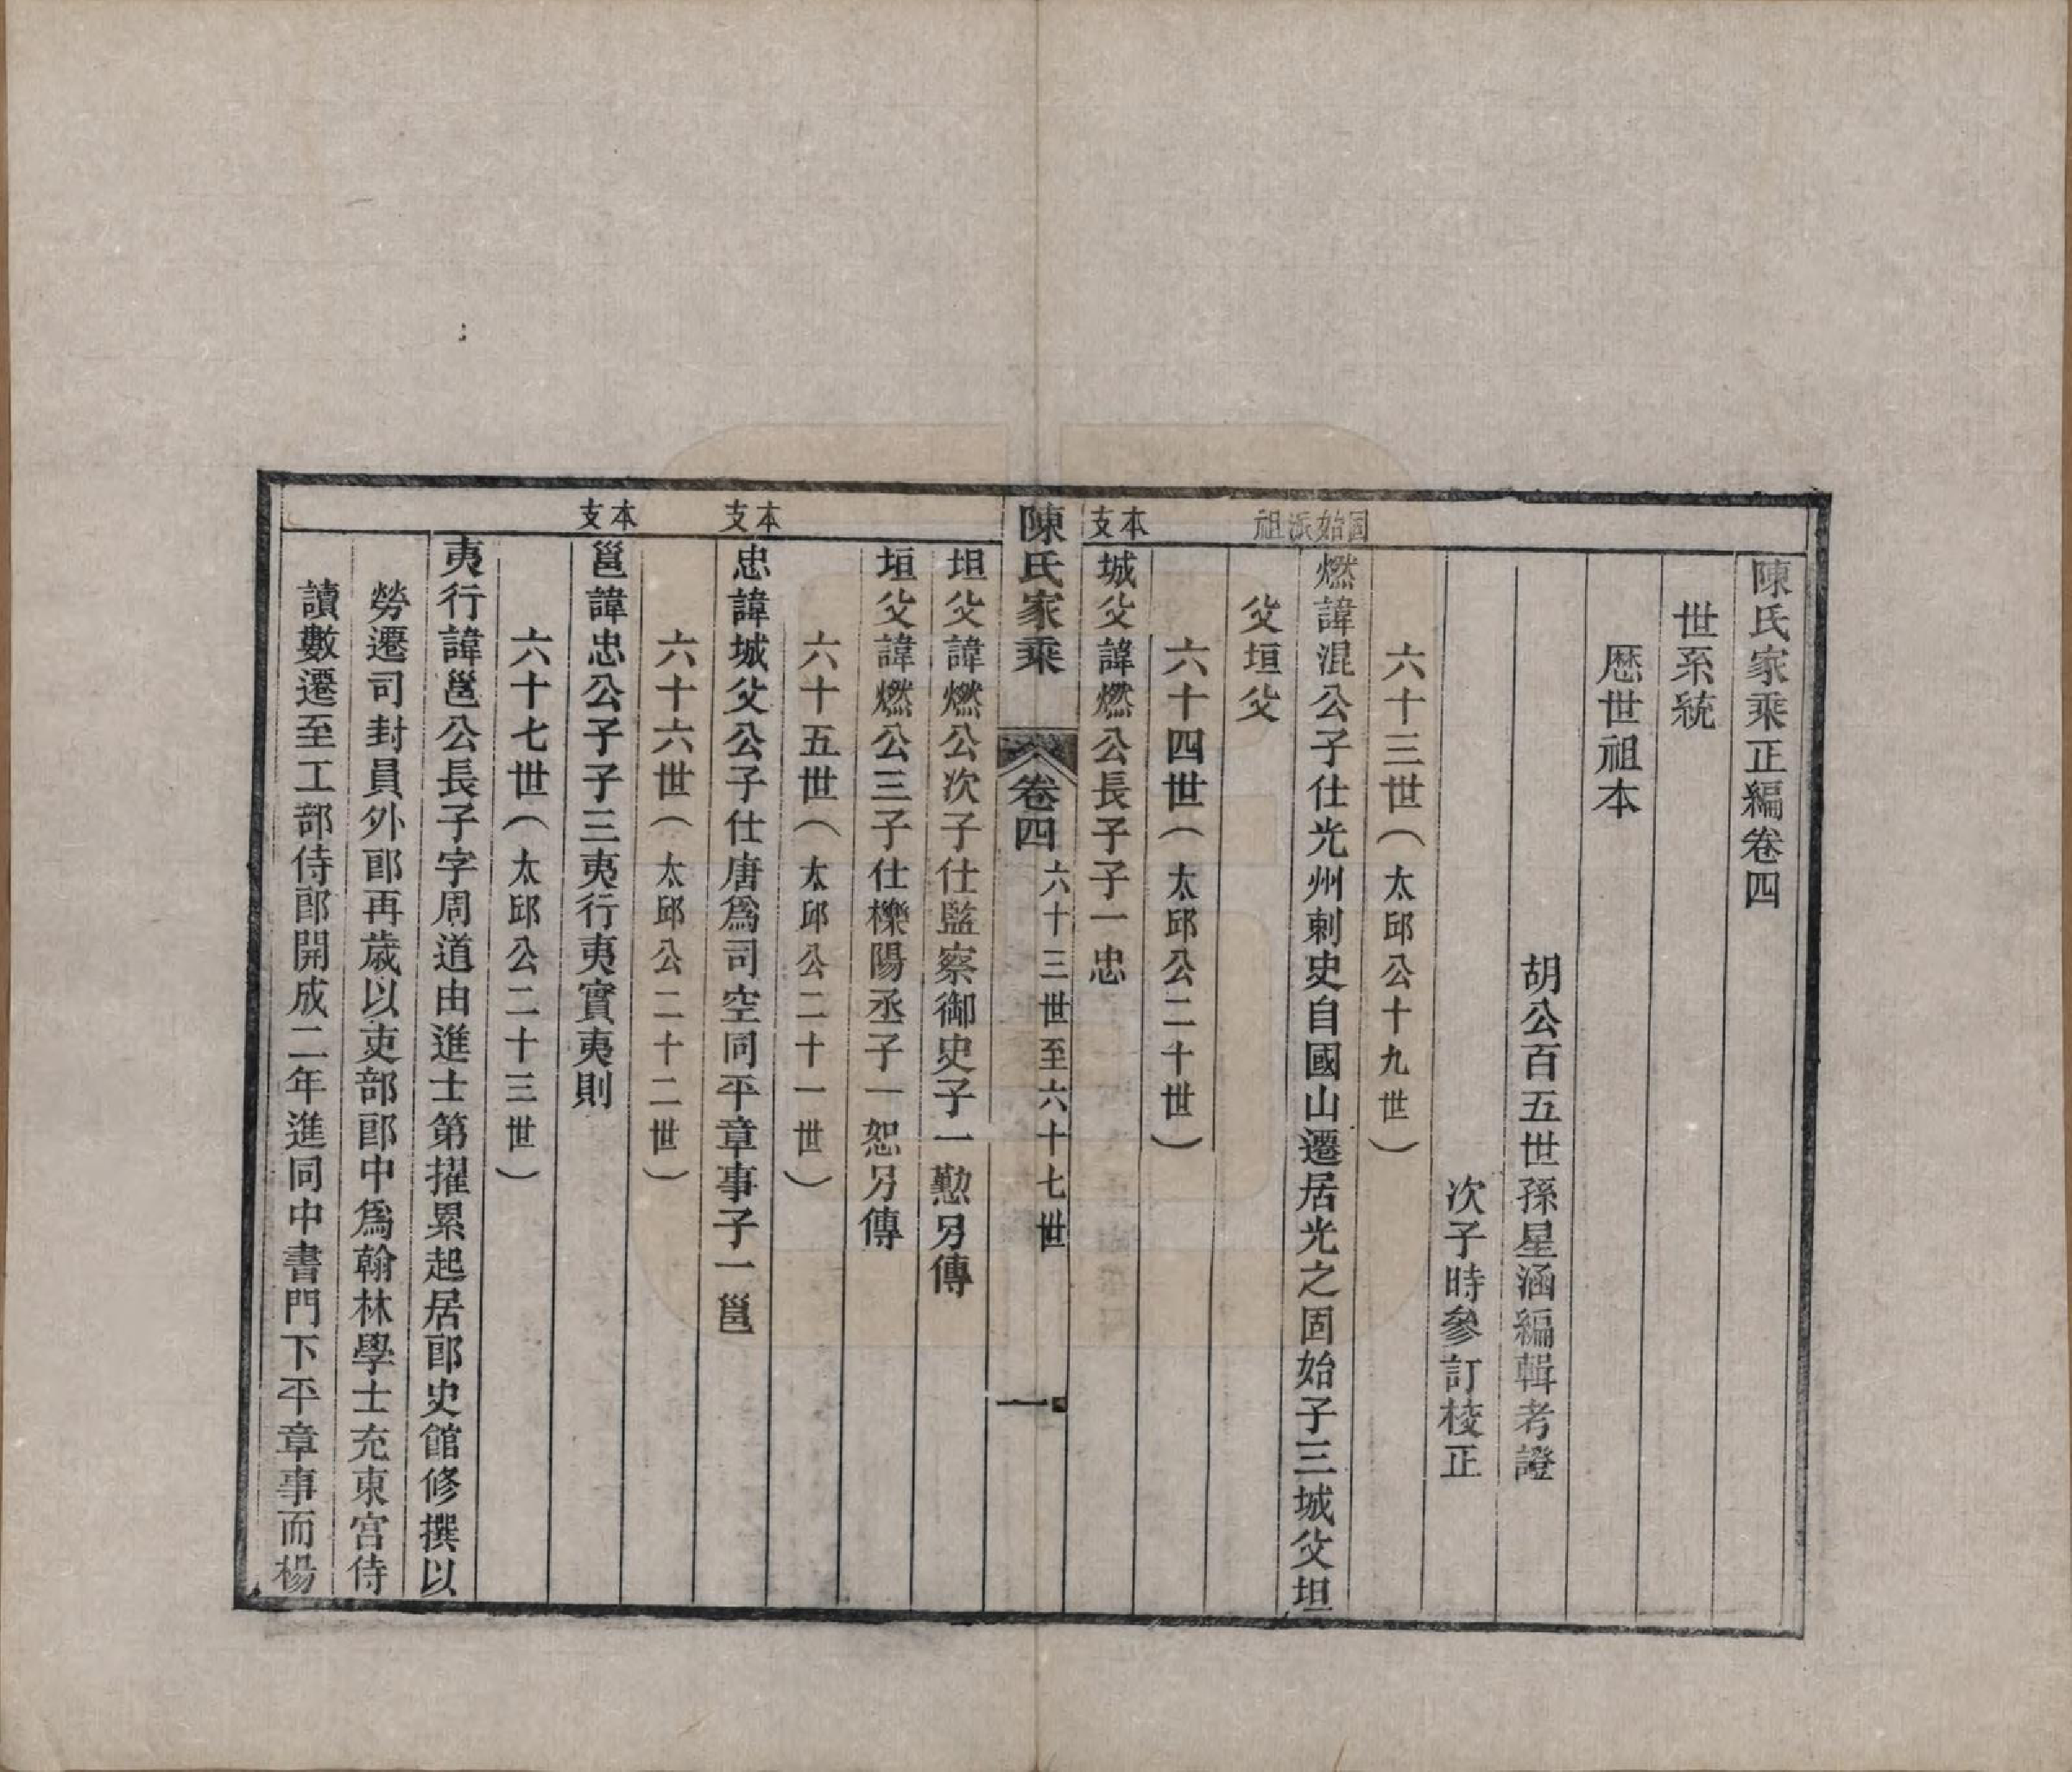 陳氏家乘正編卷四
世系統
歷世祖本
胡公百五世孫星涵編輯考證
次子時參訂校正
六十三世（太邱公十九世）
固始派祖
燃諱混公子仕光州刺史自國山遷居光之固始子三城父坦
父垣父
六十四世（太邱公二十世）
本支
城父諱燃公長子子一忠
陳氏家乘 卷四 六十三世至六十七世 一
坦父諱燃公次子仕監察御史子一懃另傳
垣父諱燃公三子仕櫟陽丞子一恕另傳
六十五世（太邱公二十一世）
本支
忠諱城父公子仕唐爲司空同平章事子一邕
六十六世（太邱公二十二世）
本支
邕諱忠公子子三夷行夷實夷則
六十七世（太邱公二十三世）
夷行諱邕公長子字周道由進士第擢累起居郎史館修撰以
勞遷司封員外郎再歲以吏部郎中爲翰林學士充東宮侍
讀數遷至工部侍郎開成二年進同中書門下平章事而楊